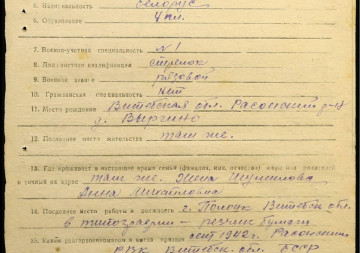 5. Национальность белорус
6. Образование 4 кл.
7. Военно-учетная специальность № 1
8. квалификация стрелок
9. Военное звание рядовой
10. Гражданская специальность нет
11. Место рождения Витебская обл. Расонский р-н
д.
12. Последнее место жительства там же.
13. Где проживает в настоящее время семья (фамилия, имя, отчество)
и точный их адрес там же. Жена
Анна Михайловна
14. Последнее место работы и должность г. Полоцк Витебск. обл.
в типографии - резчик бумаги
15. Каким райвоенкоматом и когда призван сент 1942 г. Расонским
РВК Витебск. обл. БССР